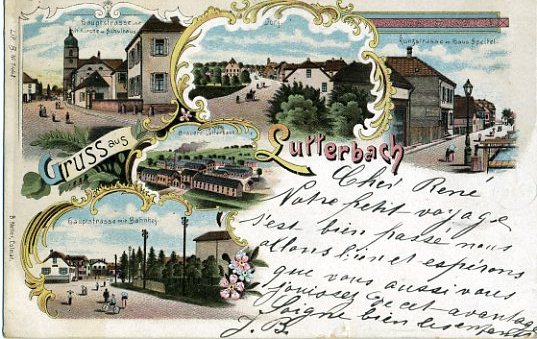 Hauptstrasse mit
Kirche u Schulhaus
Dorf
Gruss aus
Lutterbach
Brauerei Lutterbach
Hauptstrasse mit Bahnhof
Cher René
Notre petit voyage
s'est bien passé nous
allons bien et espérons
que vous aussi vous
jouissez de cet avantage
Soigne bien les enfants
J. B.